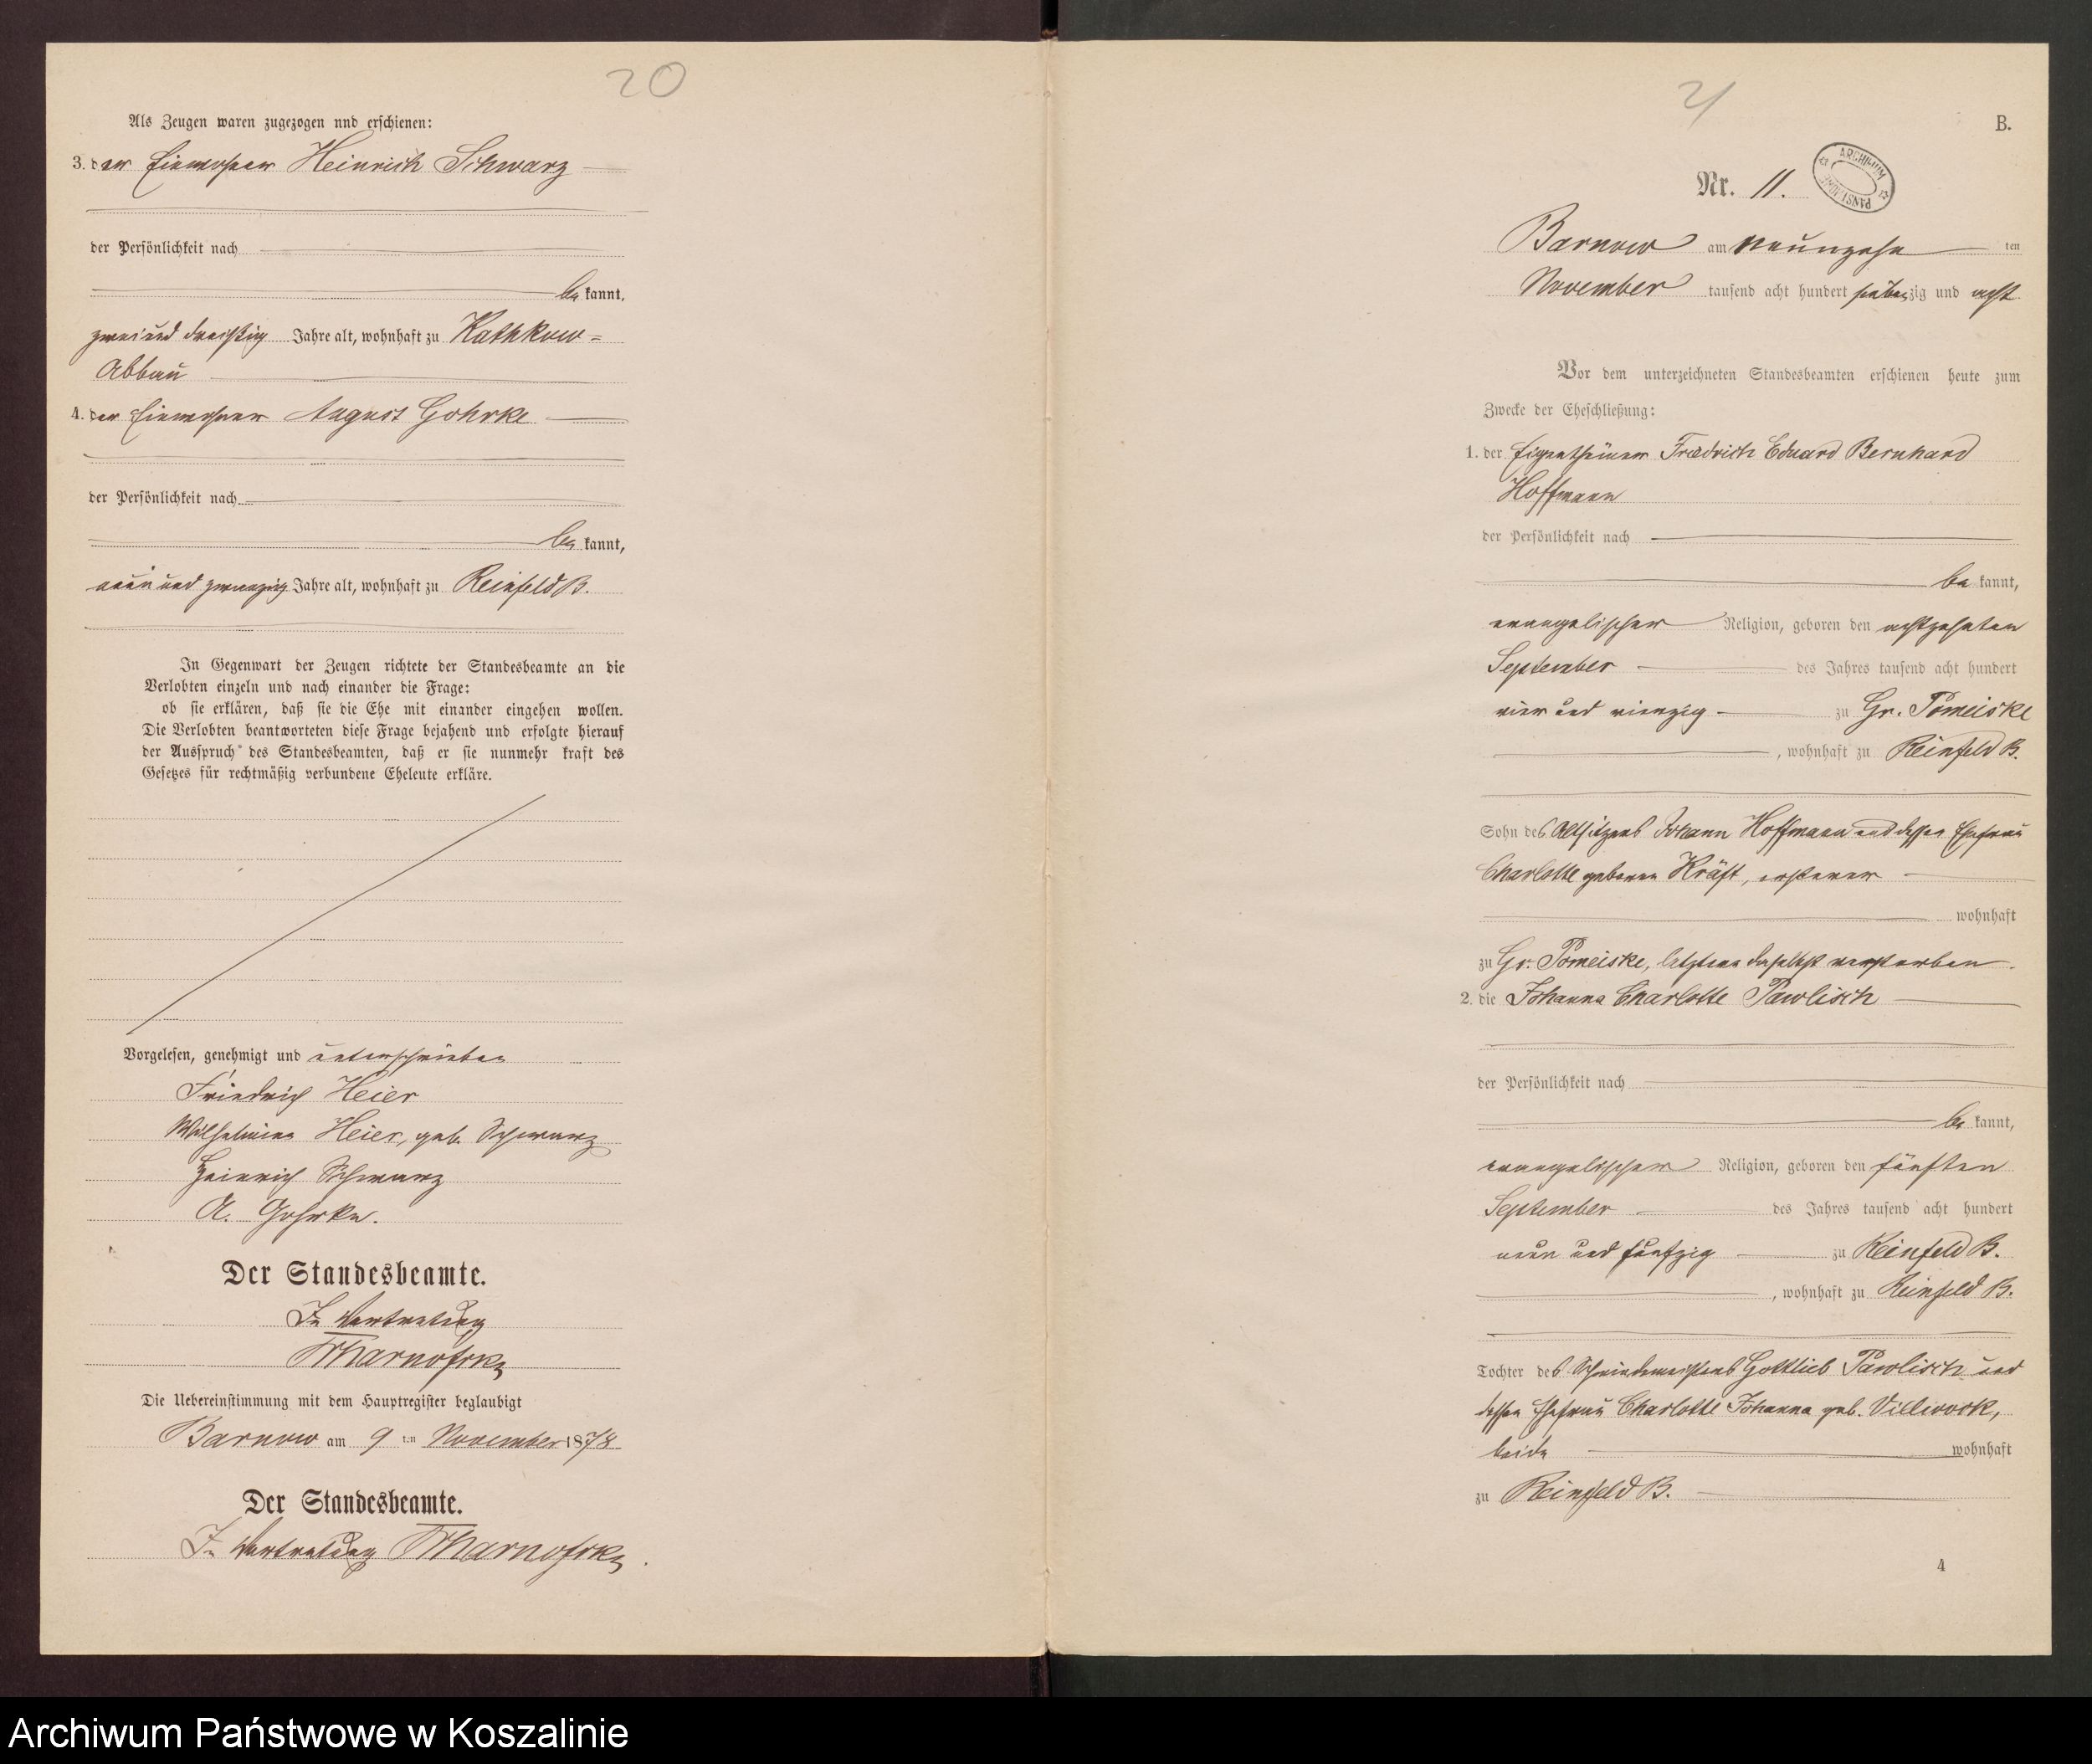 20
Als Zeugen waren zugezogen nnd erschienen:
3. der Einwohner Heinrich Schwarz
der Persönlichkeit nach
be kannt,
zwei und dreißig Jahre alt, wohnhaft zu Kathkow=
Abbau
4. der Einwohner August Gohrke
der Persönlichkeit nach
be kannt,
neun und zwanzig Jahre alt, wohnhaft zu Reinfeld B.
In Gegenwart der Zeugen richtete der Standesbeamte an die
Verlobten einzeln und nach einander die Frage:
ob sie erklären, daß sie die Ehe mit einander eingehen wollen.
Die Verlobten beantworteten diese Frage bejahend und erfolgte hierauf
der Ausspruch des Standesbeamten, daß er sie nunmehr kraft des
Gesetzes für rechtmäßig verbundene Eheleute erkläre.
Vorgelesen, genehmigt und unterschrieben
Friedrich Heier
Wilhelmine Heier, geb. Schwarz
Heinrich Schwarz
A. Gohrke.
Der Standesbeamte.
In Vertretung
Die Uebereinstimmung mit dem Hauptregister beglaubigt
Barnow am 9 ten November 1878
Der Standesbeamte.
In Vertretung
21
B.
ARCHIWUM PAŃSTWOWE
Nr. 11.
Barnow am neunzehn ten
November tausend acht hundert siebenzig und acht
Vor dem unterzeichneten Standesbeamten erschienen heute zum
Zwecke der Eheschließung:
1. der Eigenthümer Friedrich Eduard Bernhard
Hoffmann
der Persönlichkeit nach
be kannt,
evangelischer Religion, geboren den achtzehnten
September des Jahres tausend acht hundert
vier und vierzig zu Gr. Pomeiske
, wohnhaft zu Reinfeld B.
Sohn des Altsitzers Johann Hoffmann und dessen Ehefrau
Charlotte geborene Kräft, ersterer
wohnhaft
zu Gr. Pomeiske, letztere daselbst verstorben.
2. die Johanna Charlotte Pawlisch
der Persönlichkeit nach
be kannt,
evangelischer Religion, geboren den fünften
September des Jahres tausend acht hundert
neun und fünfzig zu Reinfeld B.
, wohnhaft zu Reinfeld B.
Tochter des Schmiedemeisters Gottlieb Pawlisch und
dessen Ehefrau Charlotte Johanna geb. Villwock,
beide wohnhaft
zu Reinfeld B.
4
Archiwum Państwowe w Koszalinie